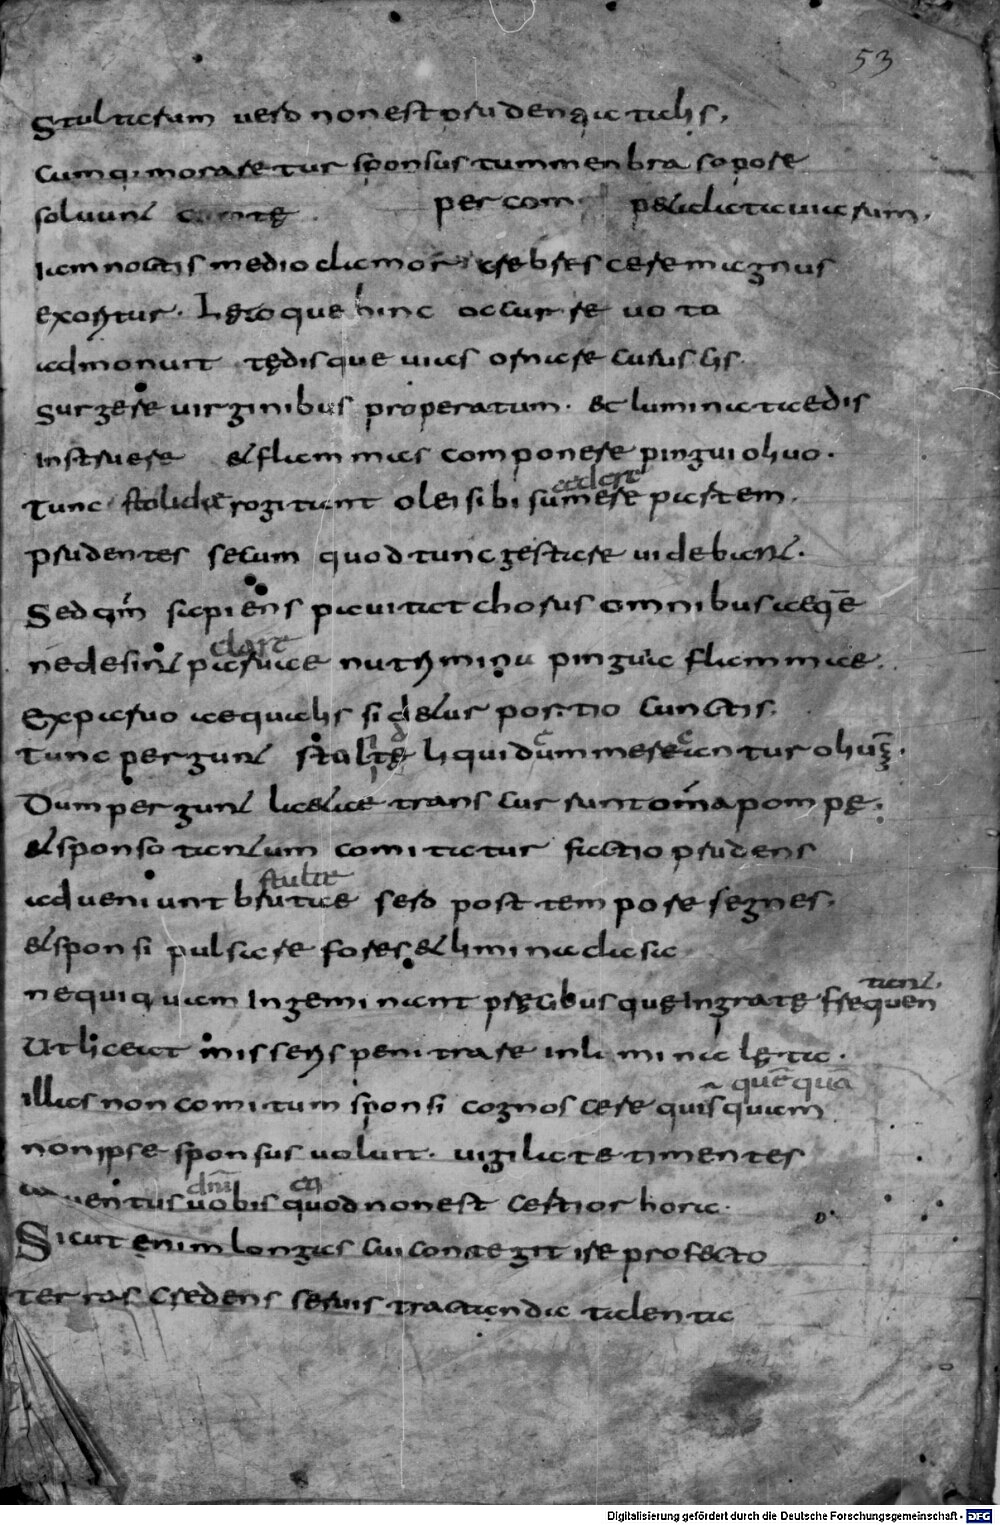 53
Stultarum uero non est prudentia talis,
cumq; moraretur sponsus tum menbra sopore
soluunt per com peracta uiarum.
iam noctis medio clamor crebrescere magnus
exoritur. Lętoque hinc occurre uoto
admonuit tędisque uias ornare curuscis.
surgere uirginibus properatum. et lumina taedis
instruere et flammas componere pinguiohuo.
aedere
Tunc stolidae rogitant olei sibi sumere partem.
prudentes secum quod tunc gestare uidebant.
Sed qm̄ sapiens pauitat chorus omnibus aeqūe
clare
ne desint paruae nutrimina pinguia flammae.
Ex paruo aequalis si detur portio cunctis.
Tunc pergunt stultę liquidum mercantur oliuū.
Dum pergunt laetae transcurrunt om̄a pompę.
et sponso tantum comitatur factio prudens
stultae
adueniunt brutae sero post tempore segnes.
et sponsi pulsare fores. et limina clasa
tant.
nequiquam ingeminant pręcibus quę ingratę frequen
Ut liceat miseris penitrare in limina lęta.
quēquā
illas non comitum sponsi cognoscere quisquam
non ipse sponsus uoluit. uigilate timentes
dn̄i
uentus uobis quod non est certior hora.
Sicut enim longas cui contegit ire profecto
terras credens seruis tractanda talenta
Digitalisierung gefördert durch die Deutsche Forschungsgemeinschaft - DFG